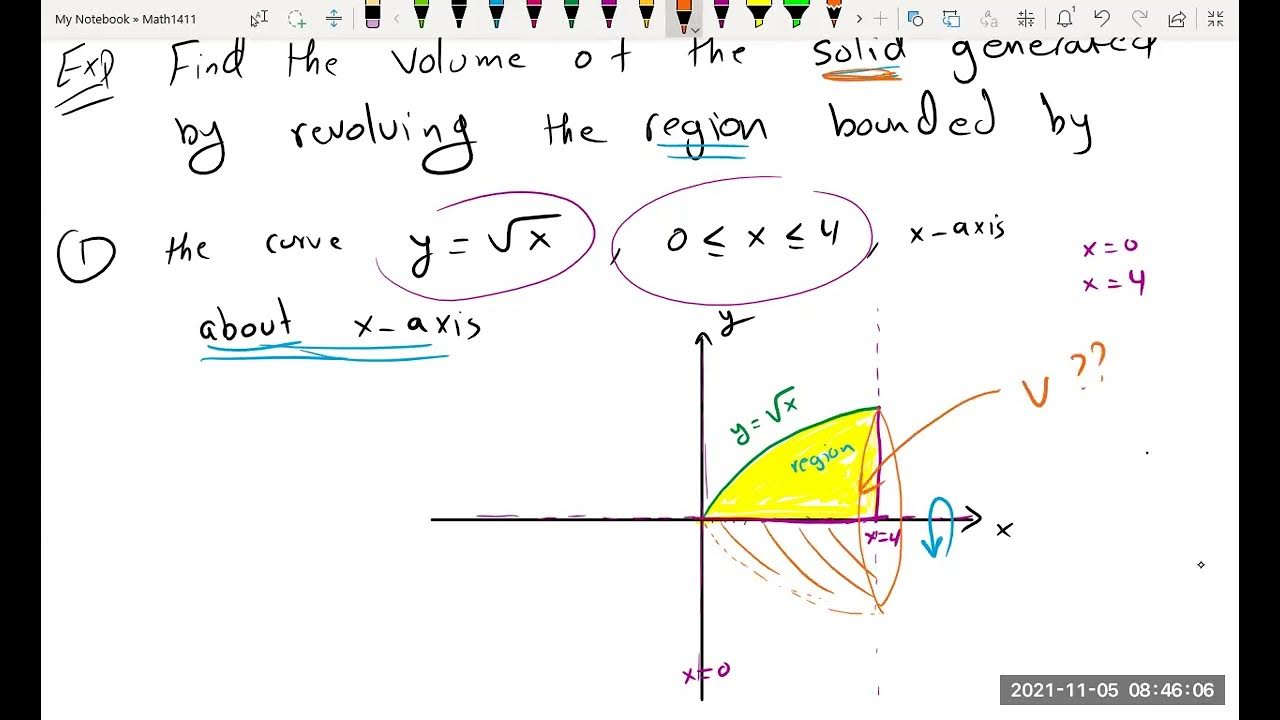 My Notebook » Math1411
Exp Find the volume of the solid generated
by revolving the region bounded by
① the curve y = √x , 0 ≤ x ≤ 4 , x-axis
x=0
x=4
about x-axis
y
V ??
y=√x
region
x=4
x
x=0
2021-11-05 08:46:06